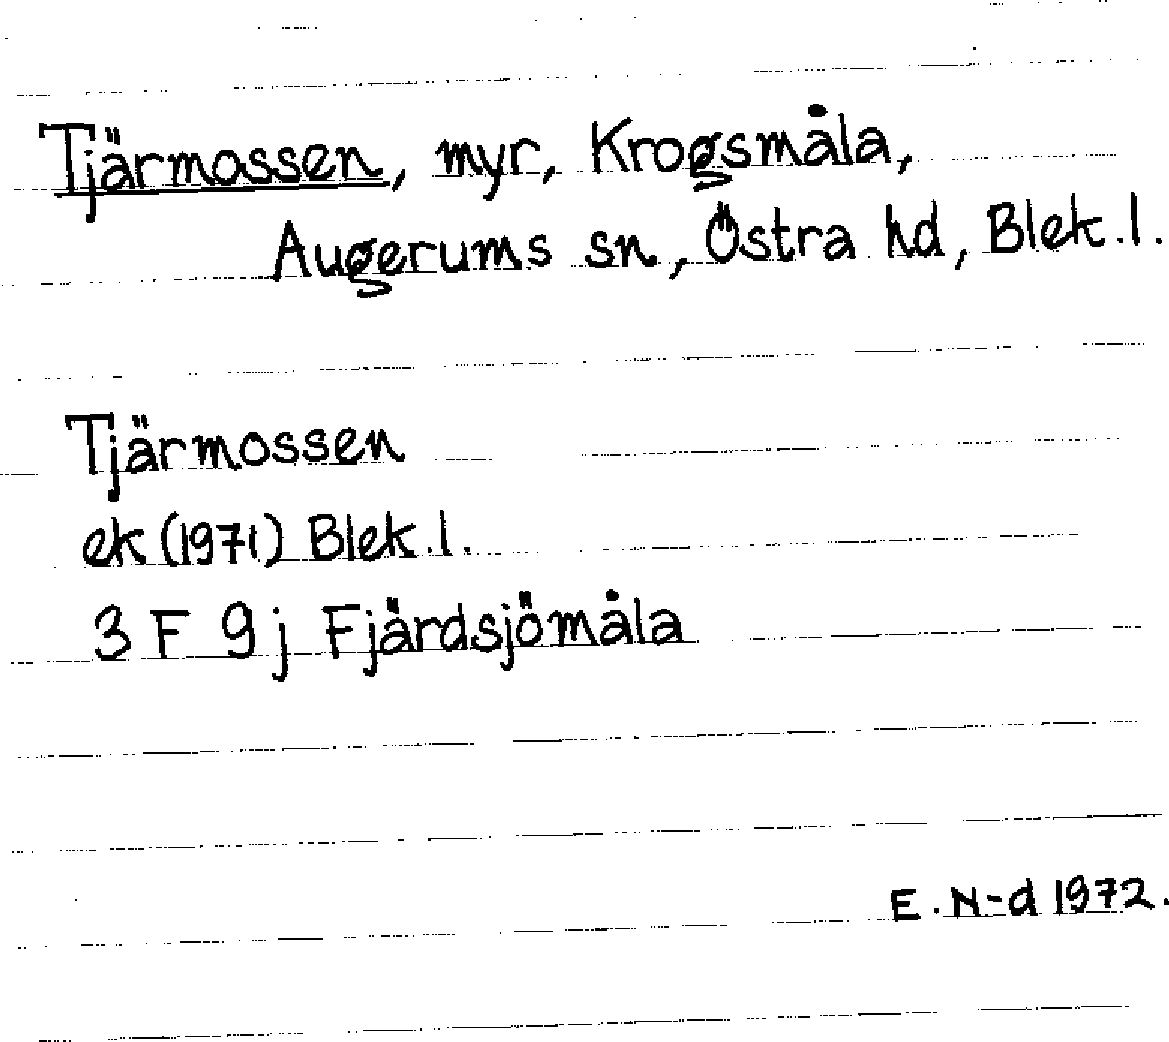 Tjärmossen, myr, Krogsmåla,
Augerums sn, Östra hd, Blek.l.
Tjärmossen
ek (1971) Blek.l.
3 F 9 j Fjärdsjömåla
E. N-d 1972.